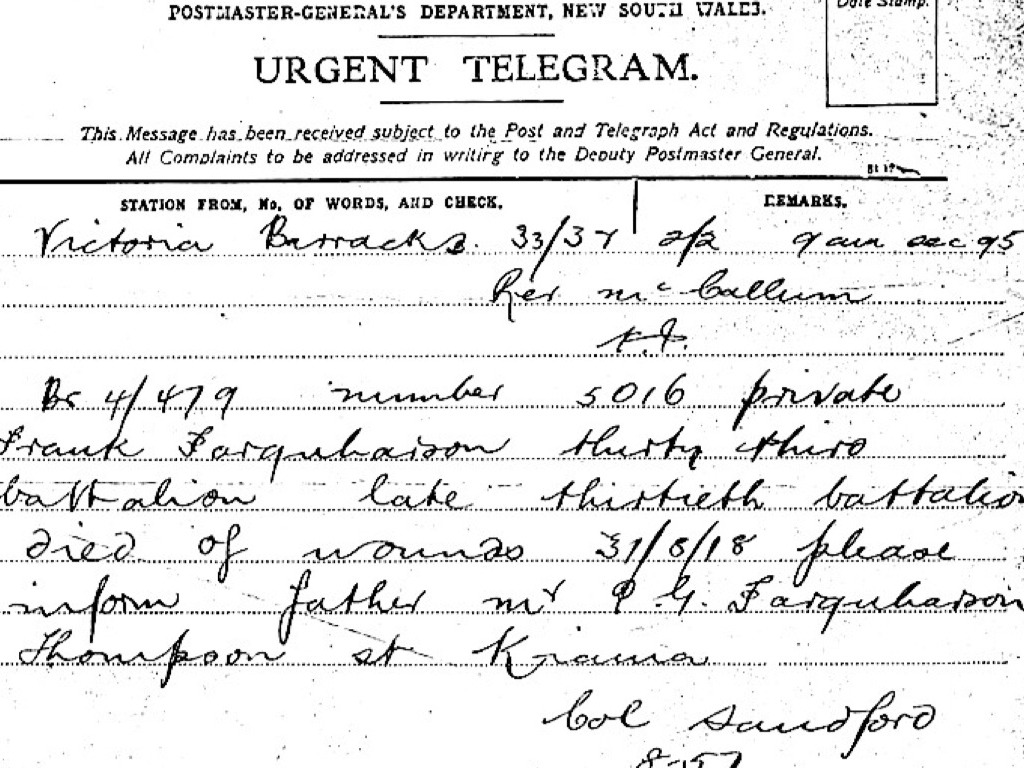 POSTMASTER-GENERAL'S DEPARTMENT, NEW SOUTH WALES.
Date Stamp.
URGENT TELEGRAM.
This Message has been received subject to the Post and Telegraph Act and Regulations.
All Complaints to be addressed in writing to the Deputy Postmaster General.
STATION FROM, No. OF WORDS, AND CHECK.
REMARKS.
Victoria Barracks. 33/37 2/2 9 am 95
Rev Mc Callum
Bs 4/479 number 5016 private
Frank Farquharson thirty third
battalion late thirtieth battalion
died of wounds 31/8/18 please
inform father mr P.G. Farquharson
Thompson st Kiama
Col Sandford